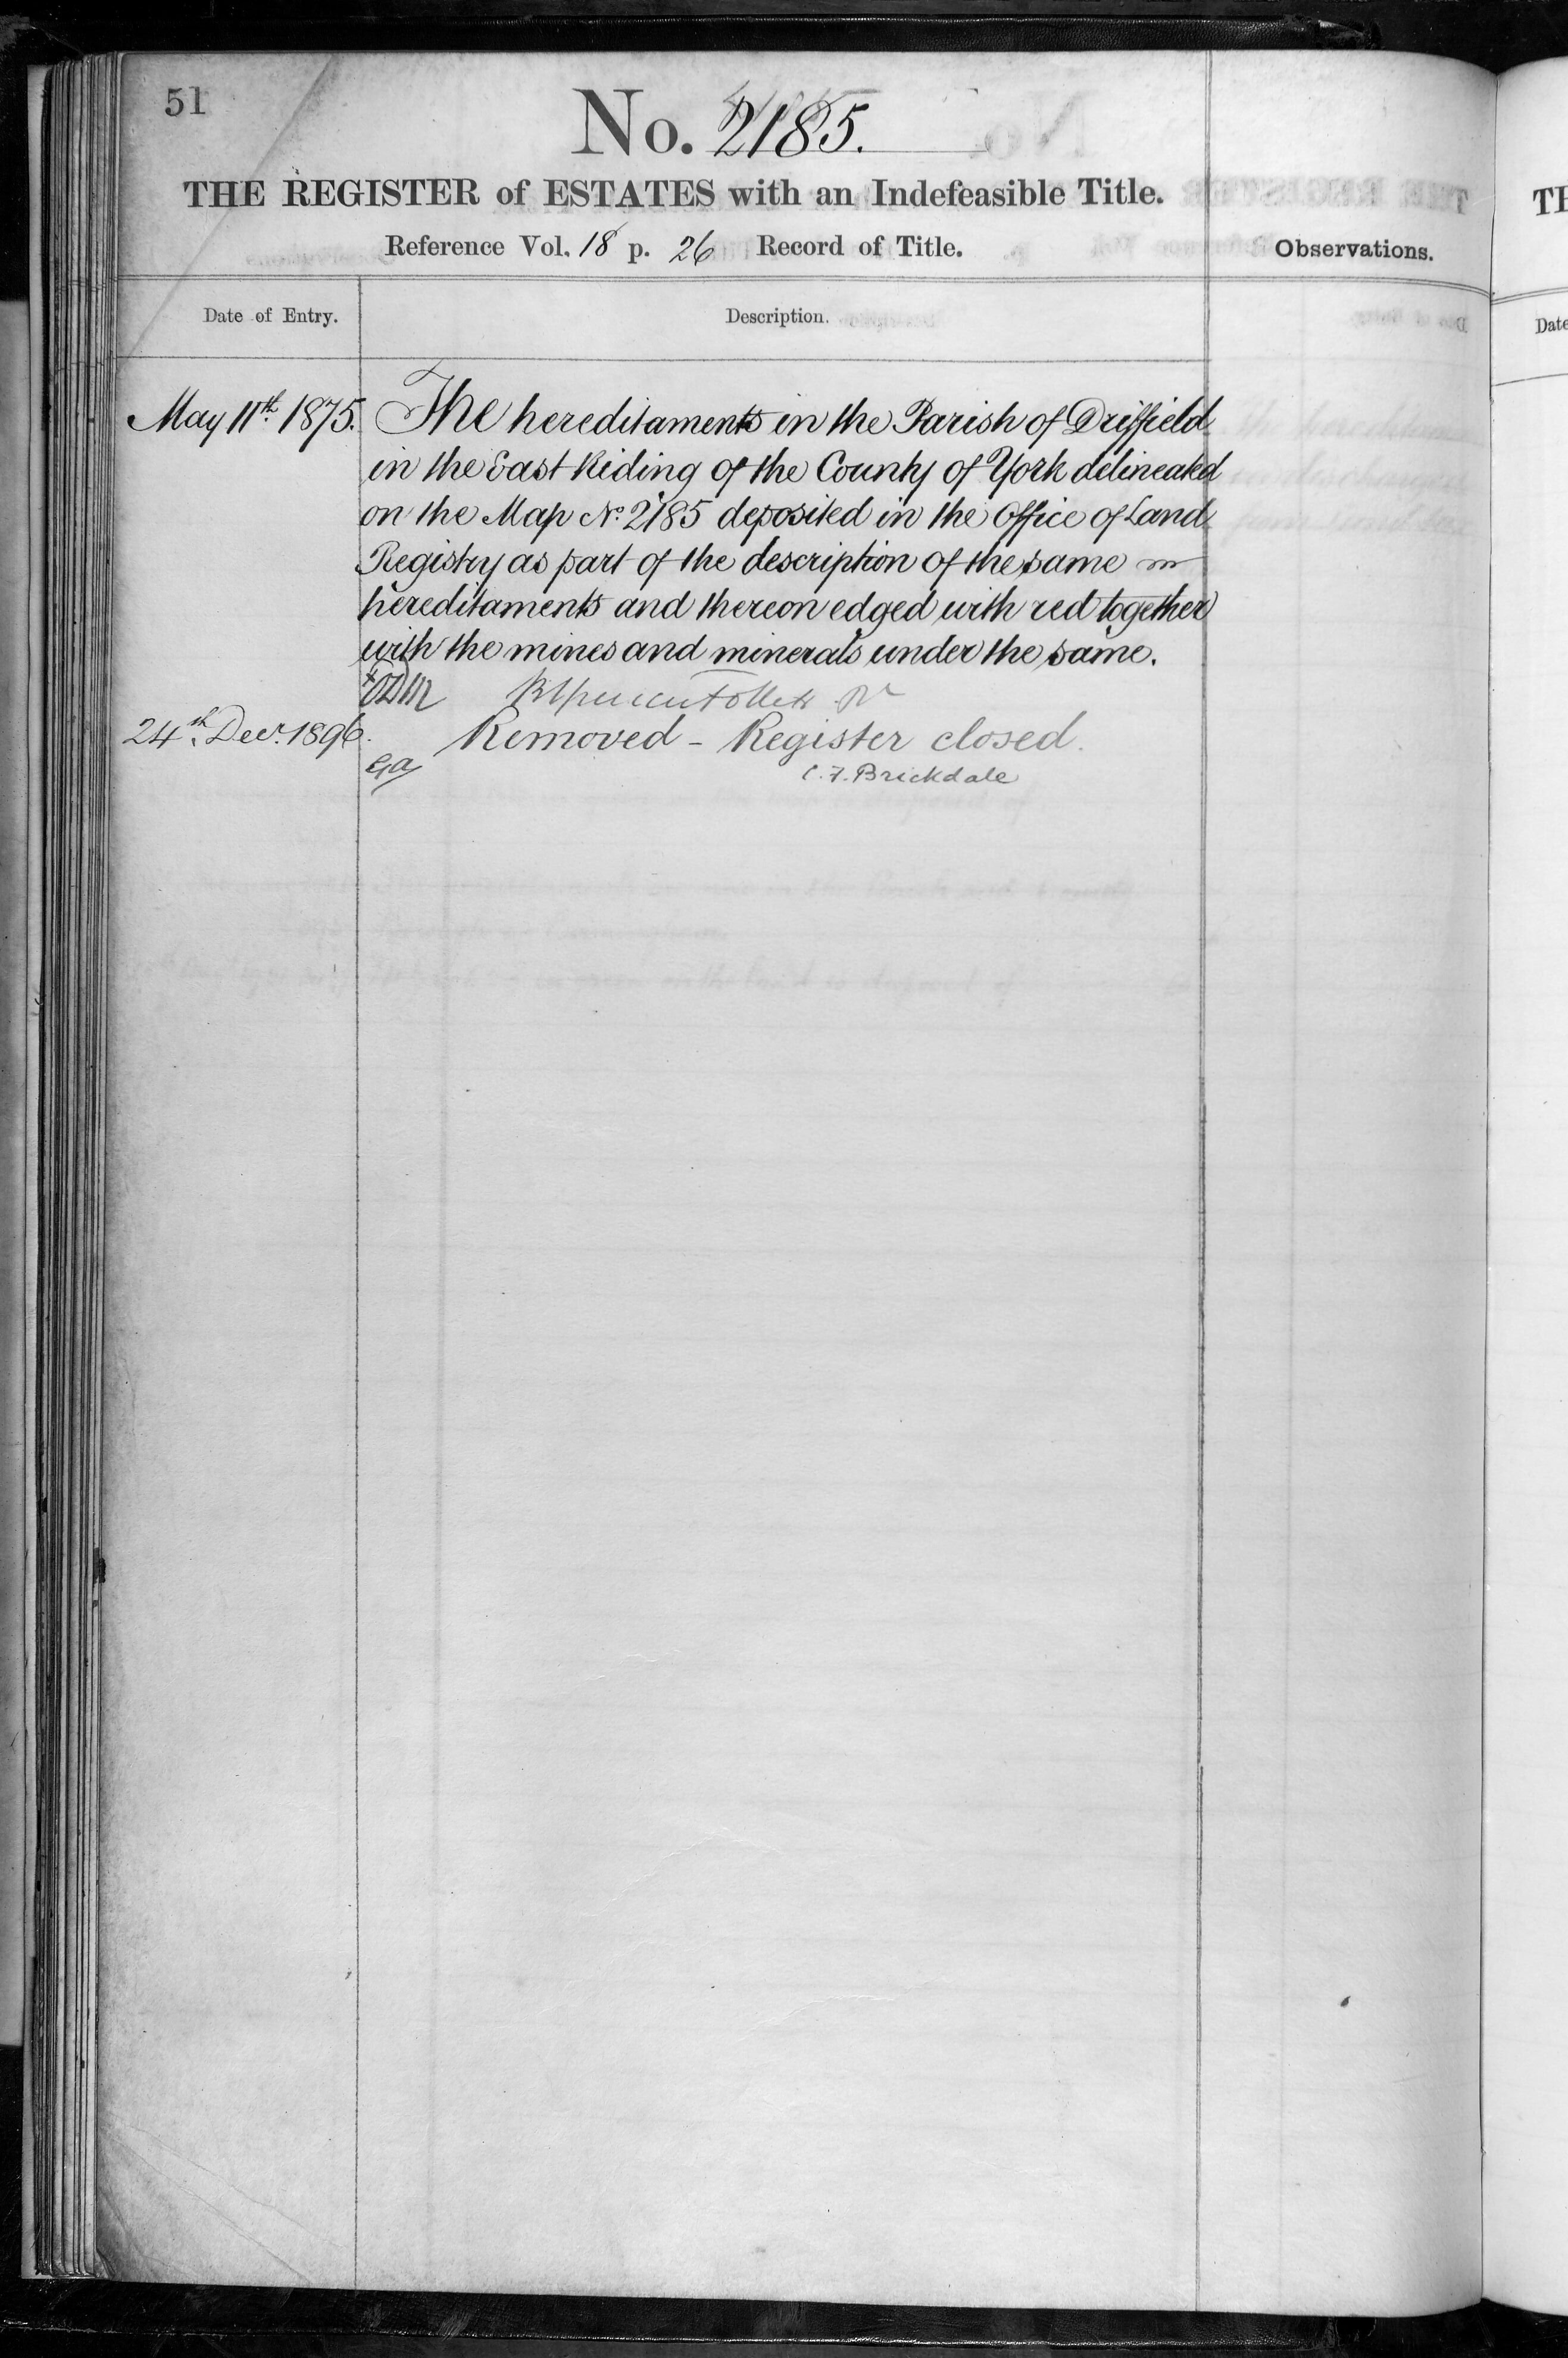 51
No. 2185.
THE REGISTER of ESTATES with an Indefeasible Title.
Reference Vol. 18 p. 26 Record of Title.
Observations.
Date of Entry.
Description.
May 11th 1875. The hereditaments in the Parish of Driffield
in the East Riding of the County of York delineated
on the Map No. 2185 deposited in the Office of Land
Registry as part of the description of the same
hereditaments and thereon edged with red together
with the mines and minerals under the same.
24th Decr. 1896. Removed - Register closed.
C. F. Brickdale
TH
Date